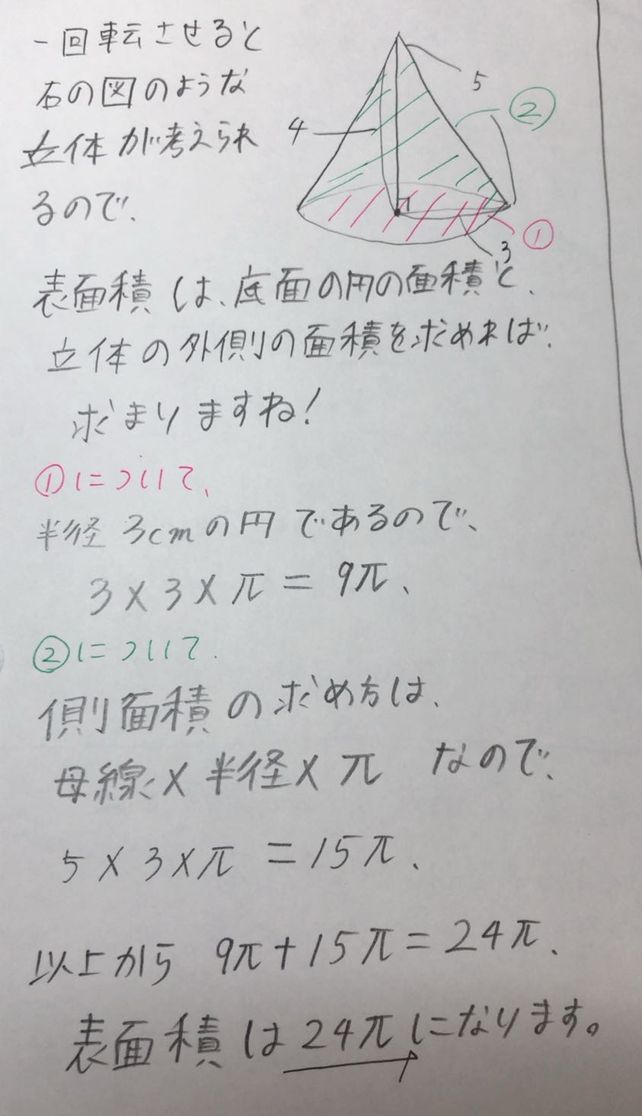 一回転させると
右の図のような
立体が考えられ
るので、
4
5
②
3
①
表面積は、底面の円の面積と、
立体の外側の面積を求めれば、
求まりますね!
①について、
半径 3cmの円であるので、
3×3×π=9π、
②について、
側面積の求め方は、
母線×半径×π なので、
5×3×π=15π、
以上から 9π+15π=24π、
表面積は24πになります。